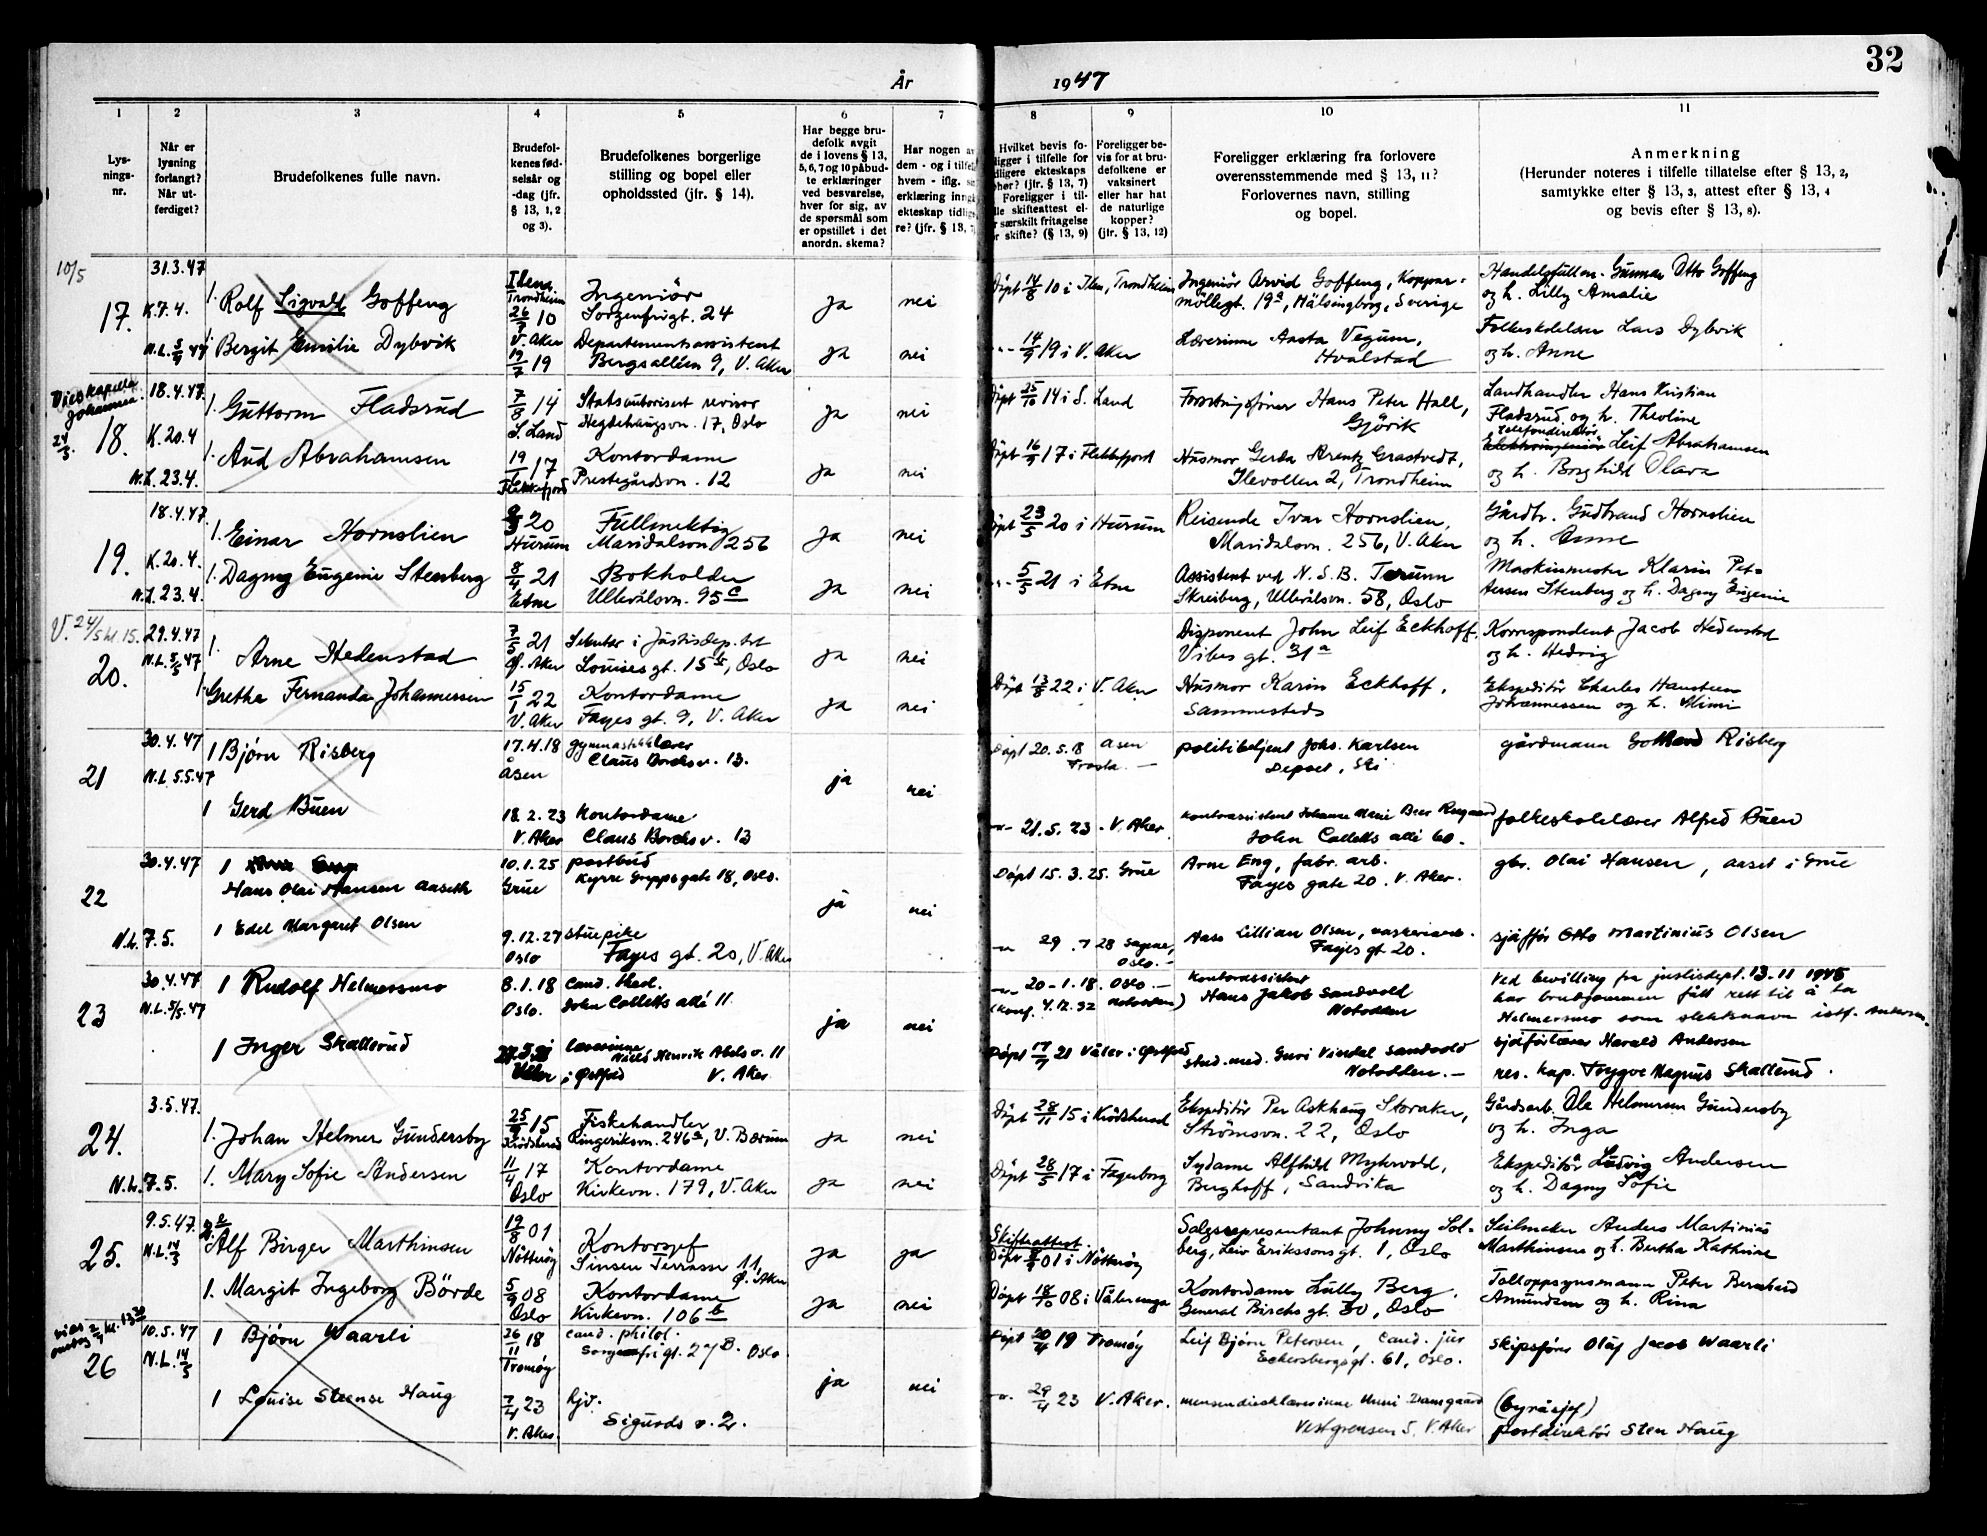 32
År 1947
1
2
3
4
5
6
7
8
9
10
11
Lys-
nings-
nr.
Når er
lysning
forlangt?
Når ut-
ferdiget?
Brudefolkenes fulle navn.
Brudefol-
kenes fød-
selsår og
-dag (jfr.
§ 13, 1, 2
og 3).
Brudefolkenes borgerlige
stilling og bopel eller
opholdssted (jfr. § 14).
Har begge bru-
defolk avgit
de i lovens § 13,
5, 6, 7 og 10 påbud-
te erklæringer
ved besvarelse,
hver for sig, av
de spørsmål som
er opstillet i det
anordn. skema?
Har nogen av
dem - og i tilfelle
hvem - iflg.
erklæring inngå
ekteskap tidlige-
re? (jfr. § 13, 7
Hvilket bevis fo-
ligger i tilfelle for
idligere ekteskaps
phør? (jfr. § 13, 7)
Foreligger i til-
lle skifteattest el-
r særskilt fritagelse
r skifte? (§ 13, 9)
Foreligger be-
vis for at bru-
defolkene er
vaksinert
eller har hat
de naturlige
kopper?
(jfr. § 13, 12)
Foreligger erklæring fra forlovere
overensstemmende med § 13, 11?
Forlovernes navn, stilling
og bopel.
Anmerkning
(Herunder noteres i tilfelle tillatelse efter § 13, 2,
samtykke efter § 13, 3, attest efter § 13, 4
og bevis efter § 13, 8).
10/5
17.
31.3.47
K.7.4.
1. Rolf Sigvald Goffeng
Ilena
Trondheim
26/7 10
Ingeniör
Sorgenfrigt. 24
ja
nei
Döpt 14/8 10 i Ilen, Trondheim
Ingeniör Arvid Goffeng, Koppar-
möllegt. 19a, Hälsingborg, Sverige
Handelsfullm. Gunnar Otto Goffeng
og h. Lilly Amalie
1. Bergit Emilie Dybvik
V. Aker
19/7 19
Departementsassistent
Bergsalléen 9, V. Aker
ja
nei
14/9 19 i V. Aker
Lærerinne Aasta Vegum,
Hvalstad
Folkeskolelærer Lars Dybvik
og h. Anne
Vies kapella
Johannea
24/5.
18.
18.4.47
K.20.4
N.L. 23.4.
1. Guttorm Fladsrud
7/8 14
S. Land
Statsautorisert revisor
Hegdehaugsvn. 17, Oslo
ja
nei
Döpt 25/10 14 i S. Land
Forretningsfører Hans Peter Hall,
Gjövik
Landhandler Hans Kristian
Fladsrud og h. Theoline
1. Aud Abrahamsen
17
Flekkefjord
Kontordame
Prestegårdsvn. 12
ja
nei
Döpt 16/9 17 i Flekkefjord
Husmor Gerda Arentz Grastvedt,
Ilevollen 2, Trondheim
telefondirektör
Leif Abrahamsen
og h. Borghild Olava
19.
18.4.47
K.20.4.
N.L. 23.4.
1. Einar Hornslien
20
Hurum
Fullmektig
Maridalsvn 256
ja
nei
Döpt 23/5 20 i Hurum
Reisende Ivar Hornslien,
Maridalsvn. 256, V. Aker
Gårdbr. Gudbrand Hornslien
og h. Anne
1. Dagny Eugenie Stenberg
8/4 21
Etne
Bokholder
Ullevålsvn. 95c
ja
nei
5/5 21 i Etne
Assistent ved N.S.B. Torunn
Skreiberg, Ullevålsvn. 58, Oslo
Maskinmester Klarin Pet-
tersen Stenberg og h. Dagny Eugenie
V. 24/5 kl. 15.
20.
29.4.47
N.L. 5/5 47
1. Arne Hedenstad
7/5 21
Ø. Aker
Sekretær i Justisdep.tet
Louises gt. 15b, Oslo
ja
nei
Disponent John Leif Eckhoff.
Vibes gt. 31a
Korrespondent Jacob Hedenstad
og h. Hedvig
1. Grethe Fernanda Johannessen
15/1 22
V. Aker
Kontordame
Fayes gt. 9, V. Aker
ja
nei
Döpt 13/8 22 i V. Aker
Husmor Karin Eckhoff.
Sammesteds
Ekspeditör Charles Hansteen
Johannessen og h. Mimi
21
30.4.47
N.L. 5.5.47
1 Bjørn Risberg
17.4.18
Åsen
gymnastikklærer
Claus Borchs v. 13.
ja
nei
Döpt 20.5.18 Åsen
Frosta.
politibetjent Johs. Karlsen
Depset, Ski
gårdmann Gotthard Risberg
1 Gerd Buen
18.2.23
V. Aker
Kontordame
Claus Borchs v. 13
21.5.23. V. Aker.
kontorassistent Johanne Marie
John Colletts allé 60.
folkeskolelærer Alfred Buen
22
30.4.47
N.L. 7.5.
1
Hans Olai Hansen Aaseth
10.1.25
Grue
postbud
Kyrre Greppsgate 18, Oslo.
ja
nei
Döpt 15.3.25. Grue
Arne Eng, fabr. arb.
Fayes gate 20. V. Aker.
gbr. Olai Hansen, aaset i Grue
1 Edel Margaret Olsen
9.12.27
Oslo
stuepike
Fayes gt. 20, V. Aker
29. 28 Sagene,
Oslo.
Aase Lillian Olsen,
Fayes gt 20.
sjåfför Otto Martinius Olsen
23
30.4.47
N.L. 5/5. 47
1 Rudolf Helmersmo
8.1.18
Oslo.
Cand. theol.
John Colletts allé 11
ja
nei
20-1.18. Oslo
(konf. 4.12.32 Notodden)
Kontorassistent
Hans Jakob Sandvold
Notodden
Ved bevilling fra justisdept. 13-11 1945
har brudgommen fått rett til å ta
Helmersmo som slektsnavn istf. Andersen.
sjåförlærer Harald Andersen
1 Inger Skallerud
Våler
i Østfold
lærerinne
Niels Henrik Abels v. 11
V. Aker
Döpt 17/7 21 Våler i Østfold
stud. med. Guri Vindal Sandvold
Notodden.
res. kap. Trygve Magnus Skallerud.
24.
3.5.47.
N.L. 7.5.
1. Johan Helmer Gundersby
25/9 15
Krödsherad
Fiskehandler
Ringeriksvn. 246a, V. Bærum
ja
nei
Döpt 28/11 15 i Krödsherad
Ekspeditör Per Askhaug Storaker,
Strömsvn. 22, Oslo
Gårdsarb. Ole Helmersen Gundersby
og h. Inga
1. Mary Sofie Andersen
11/4 17
Oslo
Kontordame
Kirkevn. 179, V. Aker
ja
nei
Döpt 28/5 17 i Fagerborg
Sydame Alfhild Myhrvold,
Berghoff, Sandvika
Ekspeditör Ludvig Andersen
og h. Dagny Sofie
25.
9.5.47.
N.L. 14/5
2
Alf Birger Marthinsen
19/8 01
Nötteröy
Kontorsjef
Sinsen Terrasse 11,
Ø. Aker
ja
ja
Skifteattest.
Döpt 01 i Nötteröy
Salgsrepresentant Johnny Sol-
berg, Leiv Erikssons gt. 1, Oslo
Seilmaker Anders Martinius
Marthinsen og h. Bertha Kathrine
1. Margit Ingeborg Börde
5/9 08
Oslo
Kontordame
Kirkevn. 106b
ja
nei
Döpt 18/10 08 i Vålerenga
Kontordame Lully Berg,
General Birchs gt. 30, Oslo
Tolloppsynsmann Peter Bernhard
Amundsen og h. Rina
kl. 13 30
26
10.5.47
N.L. 14/5
1 Bjørn Waarli
26/11 18
Tromöy
cand. philol.
Sorgenfrigt. 27 B. Oslo
ja
nei
Döpt 20/4 19 Tromöy
Leif Bjørn Petersen, cand. jur
Eckersbergsgt. 61, Oslo.
skipsfører Olaf Jacob Waarli
1 Louise Steense Haug
7/4 23
V. Aker.
hjv.
Sigurds v. 2.
29/4 23 V. Aker.
Unni Damsgaard
Vestgrensen 5. V. Aker
(byråsjef)
postdirektör Sten Haug